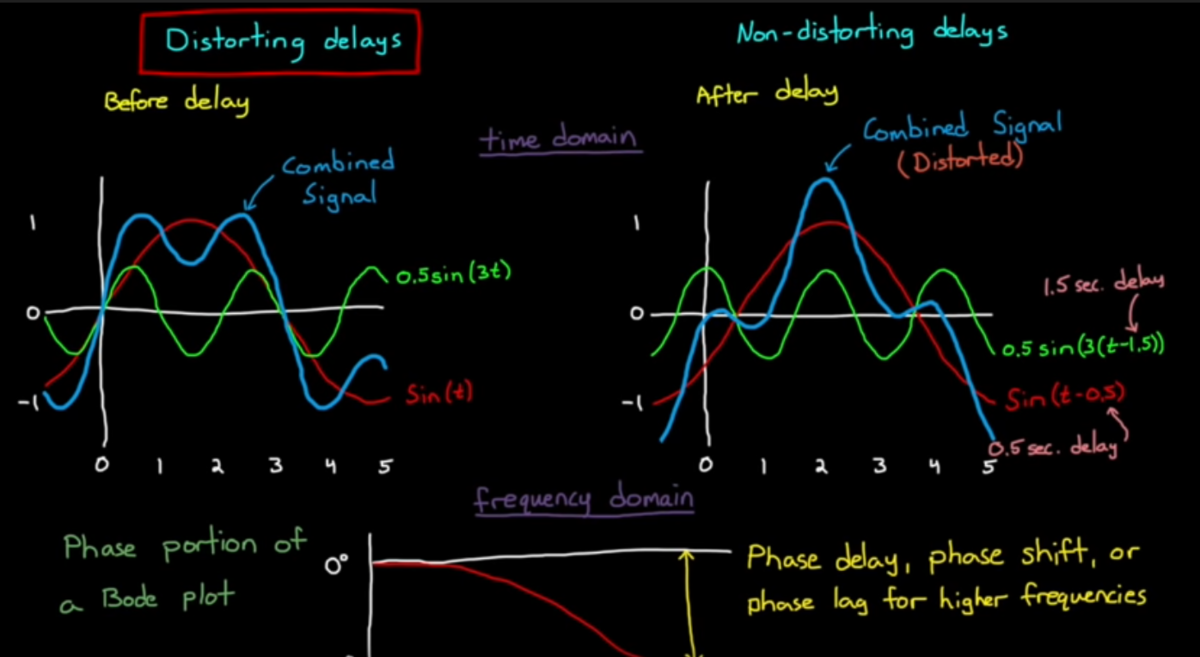 Distorting delays
Non-distorting delays
Before delay
After delay
time domain
Combined
Signal
Combined Signal
(Distorted)
1
0
-1
0.5sin(3t)
Sin(t)
0 1 2 3 4 5
1
0
-1
1.5 sec. delay
0.5 sin(3(t-1.5))
Sin(t-0.5)
0.5 sec. delay
0 1 2 3 4 5
frequency domain
Phase portion of
a Bode plot
0°
Phase delay, phase shift, or
phase lag for higher frequencies